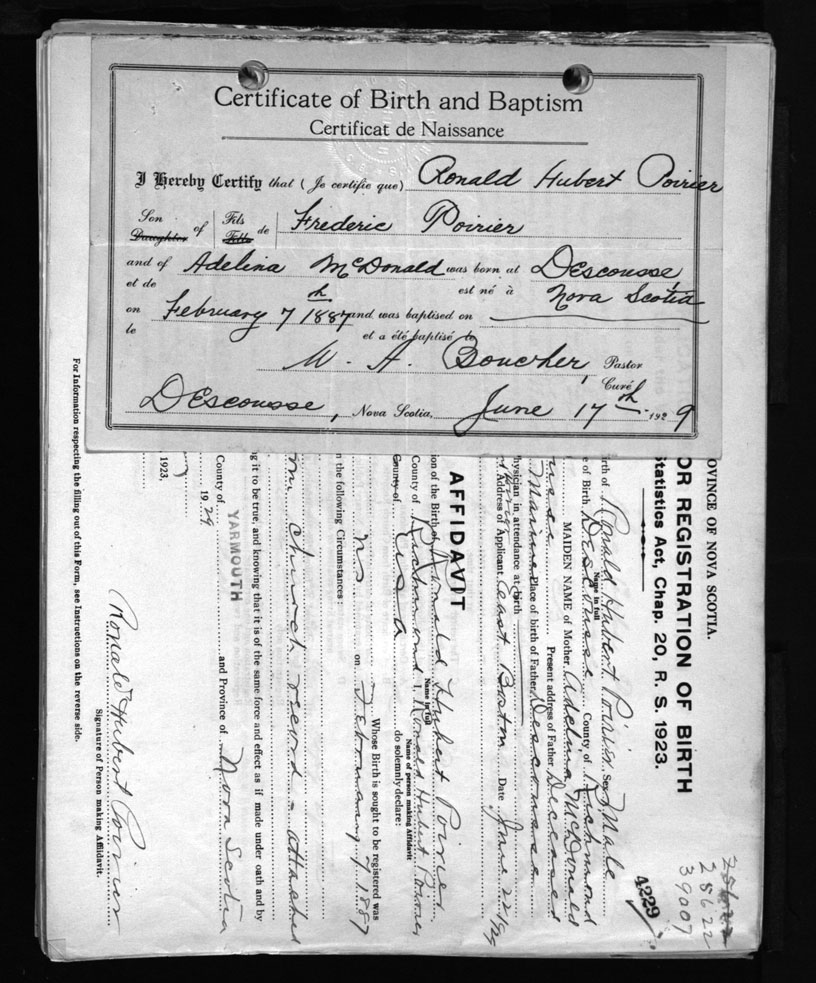 Certificate of Birth and Baptism
Certificat de Naissance
I Hereby Certify that (Je certifie que) Ronald Hubert Poirier
Son Daughter of Fils Fille de Frederic Poirier
and of Adelina McDonald was born at Descousse,
et de est né à Nova Scotia
on February 7th 1887 and was baptised on
le et a été baptisé le
W. A. Boucher, Pastor
Curé
Descousse, Nova Scotia, June 17th 1929
OVINCE OF NOVA SCOTIA.
OR REGISTRATION OF BIRTH
Statistics Act, Chap. 20, R. S. 1923.
irth of Ronald Hubert Poirier Sex Male
Name in full
e of Birth Descousse County of Richmond
MAIDEN NAME of Mother Adelina McDonald
Present address of Father Deceased
Mariner Place of birth of Father Descousse
hysician in attendance at birth
Address of Applicant East Boston Date June 22/29
AFFIDAVIT
ion of the Birth of Ronald Hubert Poirier
Name in full
County of Richmond I, Ronald Hubert Poirier
Name of person making Affidavit
County of U S A do solemnly declare:
Whose Birth is sought to be registered was
NS on February 7, 1887
n the following Circumstances:
m church record - attached
g it to be true, and knowing that it is of the same force and effect as if made under oath and by
YARMOUTH
County of and Province of Nova Scotia
1929
1923.
Ronald Hubert Poirier
Signature of Person making Affidavit.
For Information respecting the filling out of this Form, see Instructions on the reverse side.
4229
28622
39007